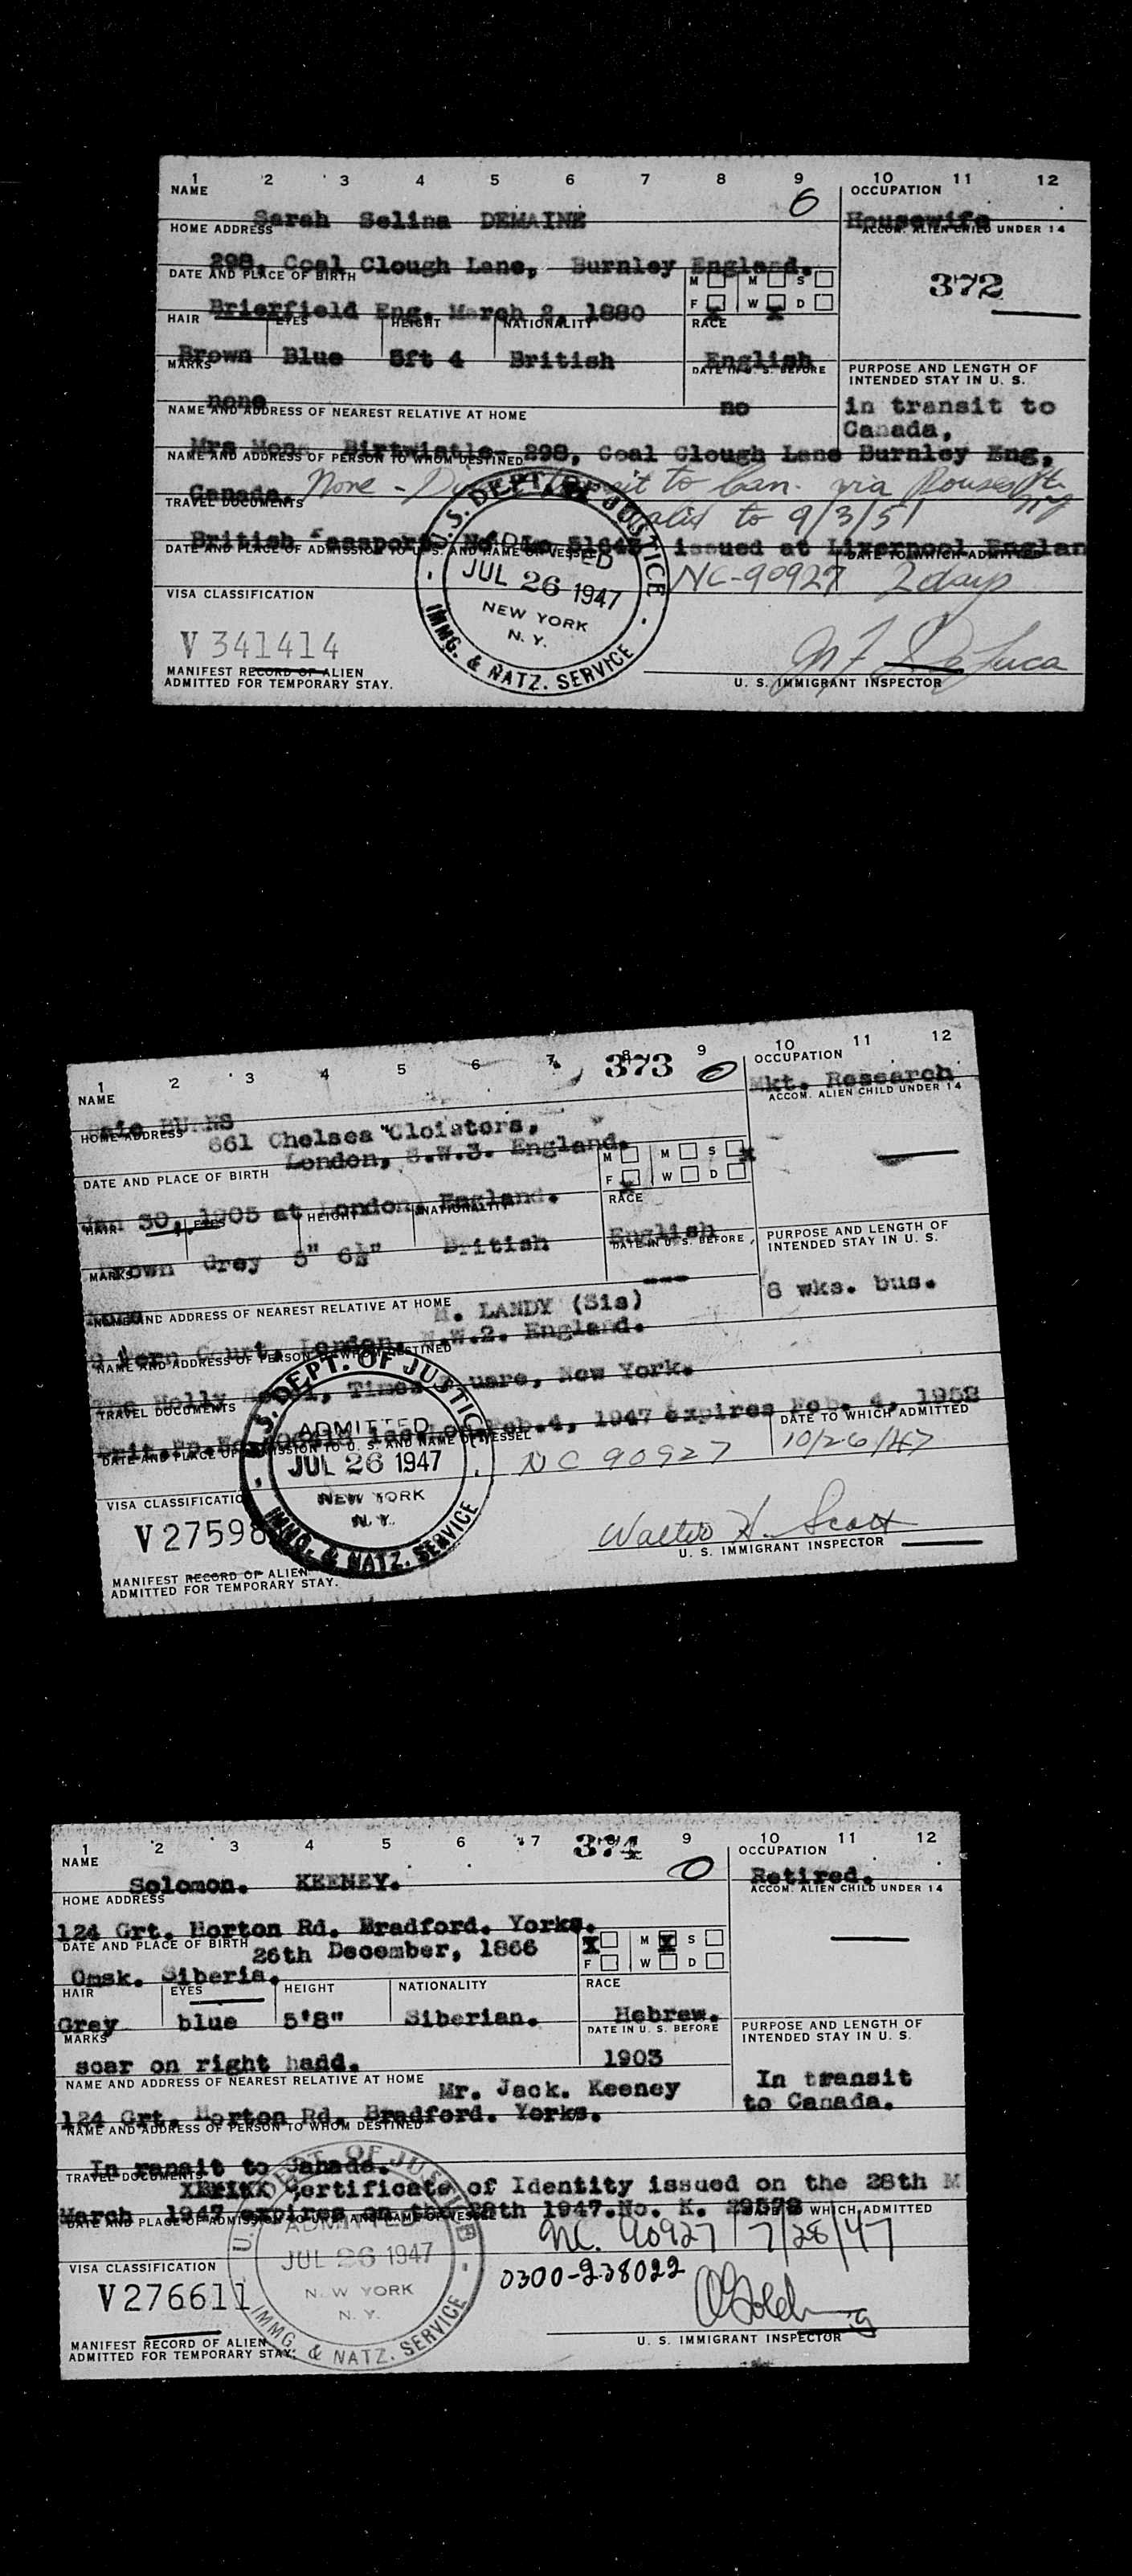 1 2 3 4 5 6 7 8 9 10 11 12
NAME OCCUPATION
Sarah Selina DEMAINE 6 Housewife
HOME ADDRESS ACCOM. ALIEN CHILD UNDER 14
298, Coal Clough Lane, Burnley England.
DATE AND PLACE OF BIRTH M M S
372
Brierfield Eng. March 2, 1880 F X W X D
HAIR EYES HEIGHT NATIONALITY RACE
Brown Blue 5ft 4 British English
MARKS DATE IN U. S. BEFORE PURPOSE AND LENGTH OF
INTENDED STAY IN U. S.
none no in transit to
NAME AND ADDRESS OF NEAREST RELATIVE AT HOME
Canada,
Mrs Birtwistle- 298, Coal Clough Lane Burnley Eng,
NAME AND ADDRESS OF PERSON TO WHOM DESTINED
Canada. None - to Can. via Rouses Pt.
TRAVEL DOCUMENTS N.Y.
valid to 9/3/51
British Passport issued at Liverpool Englan
DATE AND PLACE OF ADMISSION TO U. S. AND NAME OF VESSEL DATE TO WHICH ADMITTED
NC-90927 2 days
U. S. DEPT. OF JUSTICE
ADMITTED
JUL 26 1947
NEW YORK
N. Y.
IMMG. & NATZ. SERVICE
VISA CLASSIFICATION
V 341414
MANIFEST RECORD OF ALIEN
ADMITTED FOR TEMPORARY STAY.
U. S. IMMIGRANT INSPECTOR
1 2 3 4 5 6 7 8 9 10 11 12
373 0
NAME OCCUPATION
Mkt. Research
HOME ADDRESS ACCOM. ALIEN CHILD UNDER 14
661 Chelsea Cloisters,
London, S.W.3. England.
DATE AND PLACE OF BIRTH M M S X
F X W D
Jan 30, 1905 at London, England.
HAIR EYES HEIGHT NATIONALITY RACE
Brown Grey 5" 6½" British English
MARKS DATE IN U. S. BEFORE PURPOSE AND LENGTH OF
INTENDED STAY IN U. S.
None --- 8 wks. bus.
NAME AND ADDRESS OF NEAREST RELATIVE AT HOME
LANDY (Sis)
Court, London, N.W.2. England.
NAME AND ADDRESS OF PERSON TO WHOM DESTINED
The Holly Hotel, Times Square, New York.
TRAVEL DOCUMENTS
Feb.4, 1947 expires Feb. 4, 1952
DATE AND PLACE OF ADMISSION TO U. S. AND NAME OF VESSEL DATE TO WHICH ADMITTED
NC 90927 10/26/47
U. S. DEPT. OF JUSTICE
ADMITTED
JUL 26 1947
NEW YORK
N. Y.
IMMG. & NATZ. SERVICE
VISA CLASSIFICATION
V 27598
Walter H. Scott
U. S. IMMIGRANT INSPECTOR
MANIFEST RECORD OF ALIEN
ADMITTED FOR TEMPORARY STAY.
1 2 3 4 5 6 7 8 9 10 11 12
374 0
NAME OCCUPATION
Solomon. KEENEY. Retired.
HOME ADDRESS ACCOM. ALIEN CHILD UNDER 14
124 Grt. Horton Rd. Bradford. Yorks.
DATE AND PLACE OF BIRTH 26th December, 1866 X M X S
Omsk. Siberia. F W D
HAIR EYES HEIGHT NATIONALITY RACE
Grey blue 5'8" Siberian. Hebrew.
MARKS DATE IN U. S. BEFORE PURPOSE AND LENGTH OF
INTENDED STAY IN U. S.
scar on right hadd. 1903
NAME AND ADDRESS OF NEAREST RELATIVE AT HOME Mr. Jack. Keeney In transit
to Canada.
124 Grt. Horton Rd. Bradford. Yorks.
NAME AND ADDRESS OF PERSON TO WHOM DESTINED
In ransit to Canada.
TRAVEL DOCUMENTS
Certificate of Identity issued on the 28th M
March 1947 expires on the 28th 1947.No. K. 29578 WHICH ADMITTED
DATE AND PLACE OF ADMISSION TO U. S. AND NAME OF VESSEL
NC. 90927 7/28/47
U. S. DEPT. OF JUSTICE
ADMITTED
JUL 26 1947
NEW YORK
N. Y.
IMMG. & NATZ. SERVICE
VISA CLASSIFICATION
0300-238022
V 276611
U. S. IMMIGRANT INSPECTOR
MANIFEST RECORD OF ALIEN
ADMITTED FOR TEMPORARY STAY.